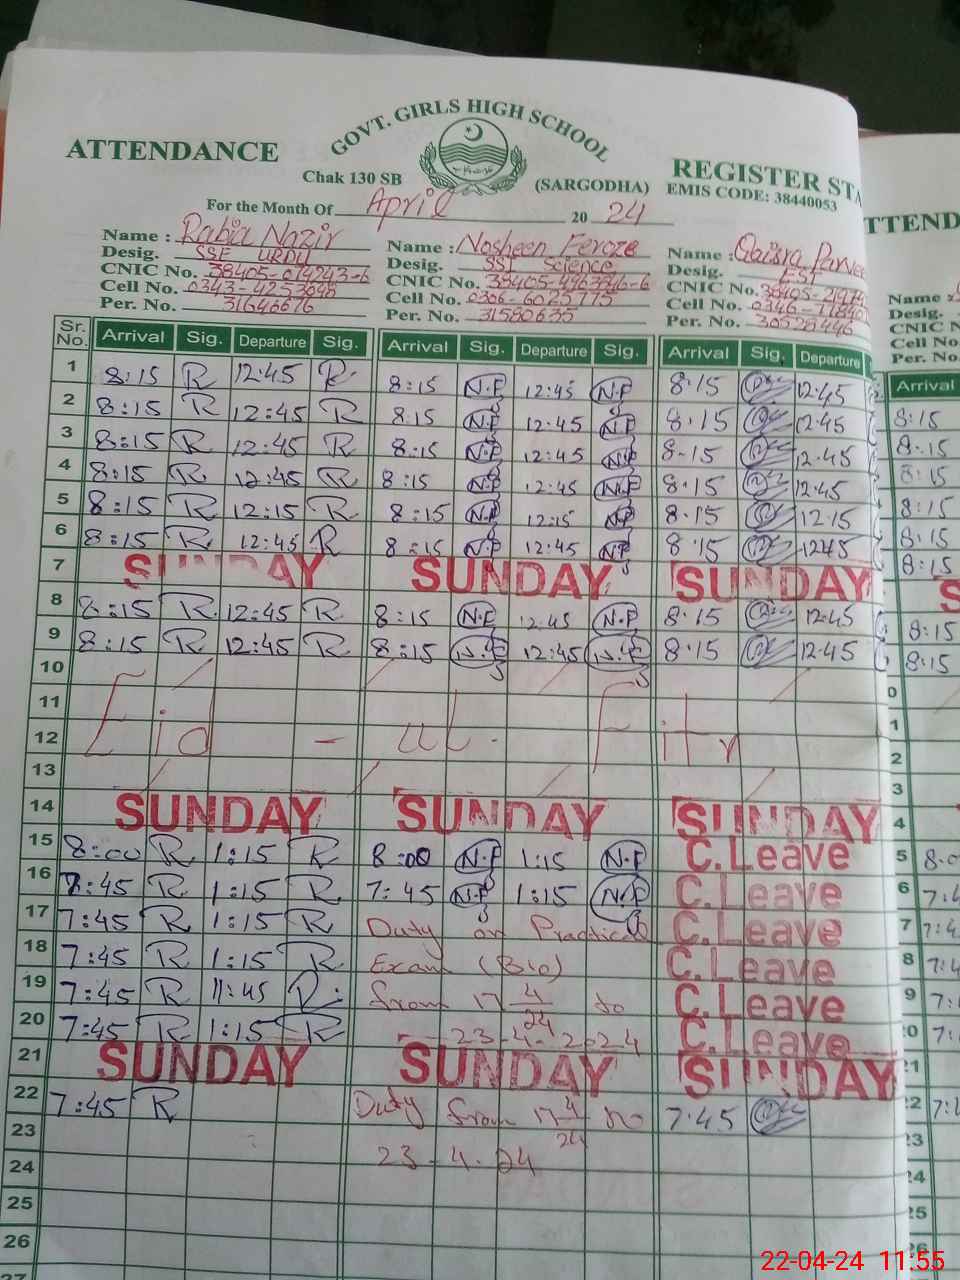 GOVT. GIRLS HIGH SCHOOL
ATTENDANCE
REGISTER STA
Chak 130 SB
(SARGODHA)
EMIS CODE: 38440053
For the Month Of April 20 24
Name : Rabia Nazir
Desig. SSE URDU
CNIC No.
Cell No. 0343-4253848
Per. No. 31646676
Name : Nosheen Feroze
Desig. SSE Science
CNIC No.
Cell No. 0306-6025775
Per. No. 31580635
Name :
Desig. EST
CNIC No.
Cell No.
Per. No. 30528446
TTEND
Name
Desig.
CNIC N
Cell No
Per. No
Sr. No. Arrival Sig. Departure Sig. Arrival Sig. Departure Sig. Arrival Sig. Departure Arrival
1 8:15 R 12:45 R 8:15 N.F 12:45 N.F 8.15 12.45 8:15
2 8:15 R 12:45 R 8:15 N.F 12:45 N.F 8.15 12.45 8:15
3 8:15 R 12:45 R 8:15 N.F 12:45 N.F 8.15 12.45 8:15
4 8:15 R 12:45 R 8:15 N.F 12:45 N.F 8.15 12.45 8:15
5 8:15 R 12:15 R 8:15 N.F 12:15 N.F 8.15 12.15 8:15
6 8:15 R 12:45 R 8:15 N.F 12:45 N.F 8.15 1245 8:15
7 SUNDAY SUNDAY SUNDAY
8 8:15 R 12:45 R 8:15 N.F 12.45 N.F 8.15 12.45 8:15
9 8:15 R 12:45 R 8:15 N.F 12:45 N.F 8.15 12.45 8:15
10
11
12 Eid - ul - Fitr
13
14 SUNDAY SUNDAY SUNDAY
15 8:00 R 1:15 R 8:00 N.F 1:15 N.F C.Leave
16 7:45 R 1:15 R 7:45 N.F 1:15 N.F C.Leave
17 7:45 R 1:15 R Duty on Practical C.Leave
18 7:45 R 1:15 R Exam (Bio) C.Leave
19 7:45 R 11:45 R from 17 4/24 to C.Leave
20 7:45 R 1:15 R 23-4-2024 C.Leave
21 SUNDAY SUNDAY SUNDAY
22 7:45 R Duty from 17 4/24 to 7.45
23
24 23-4-24
25
26
27
22-04-24 11:55